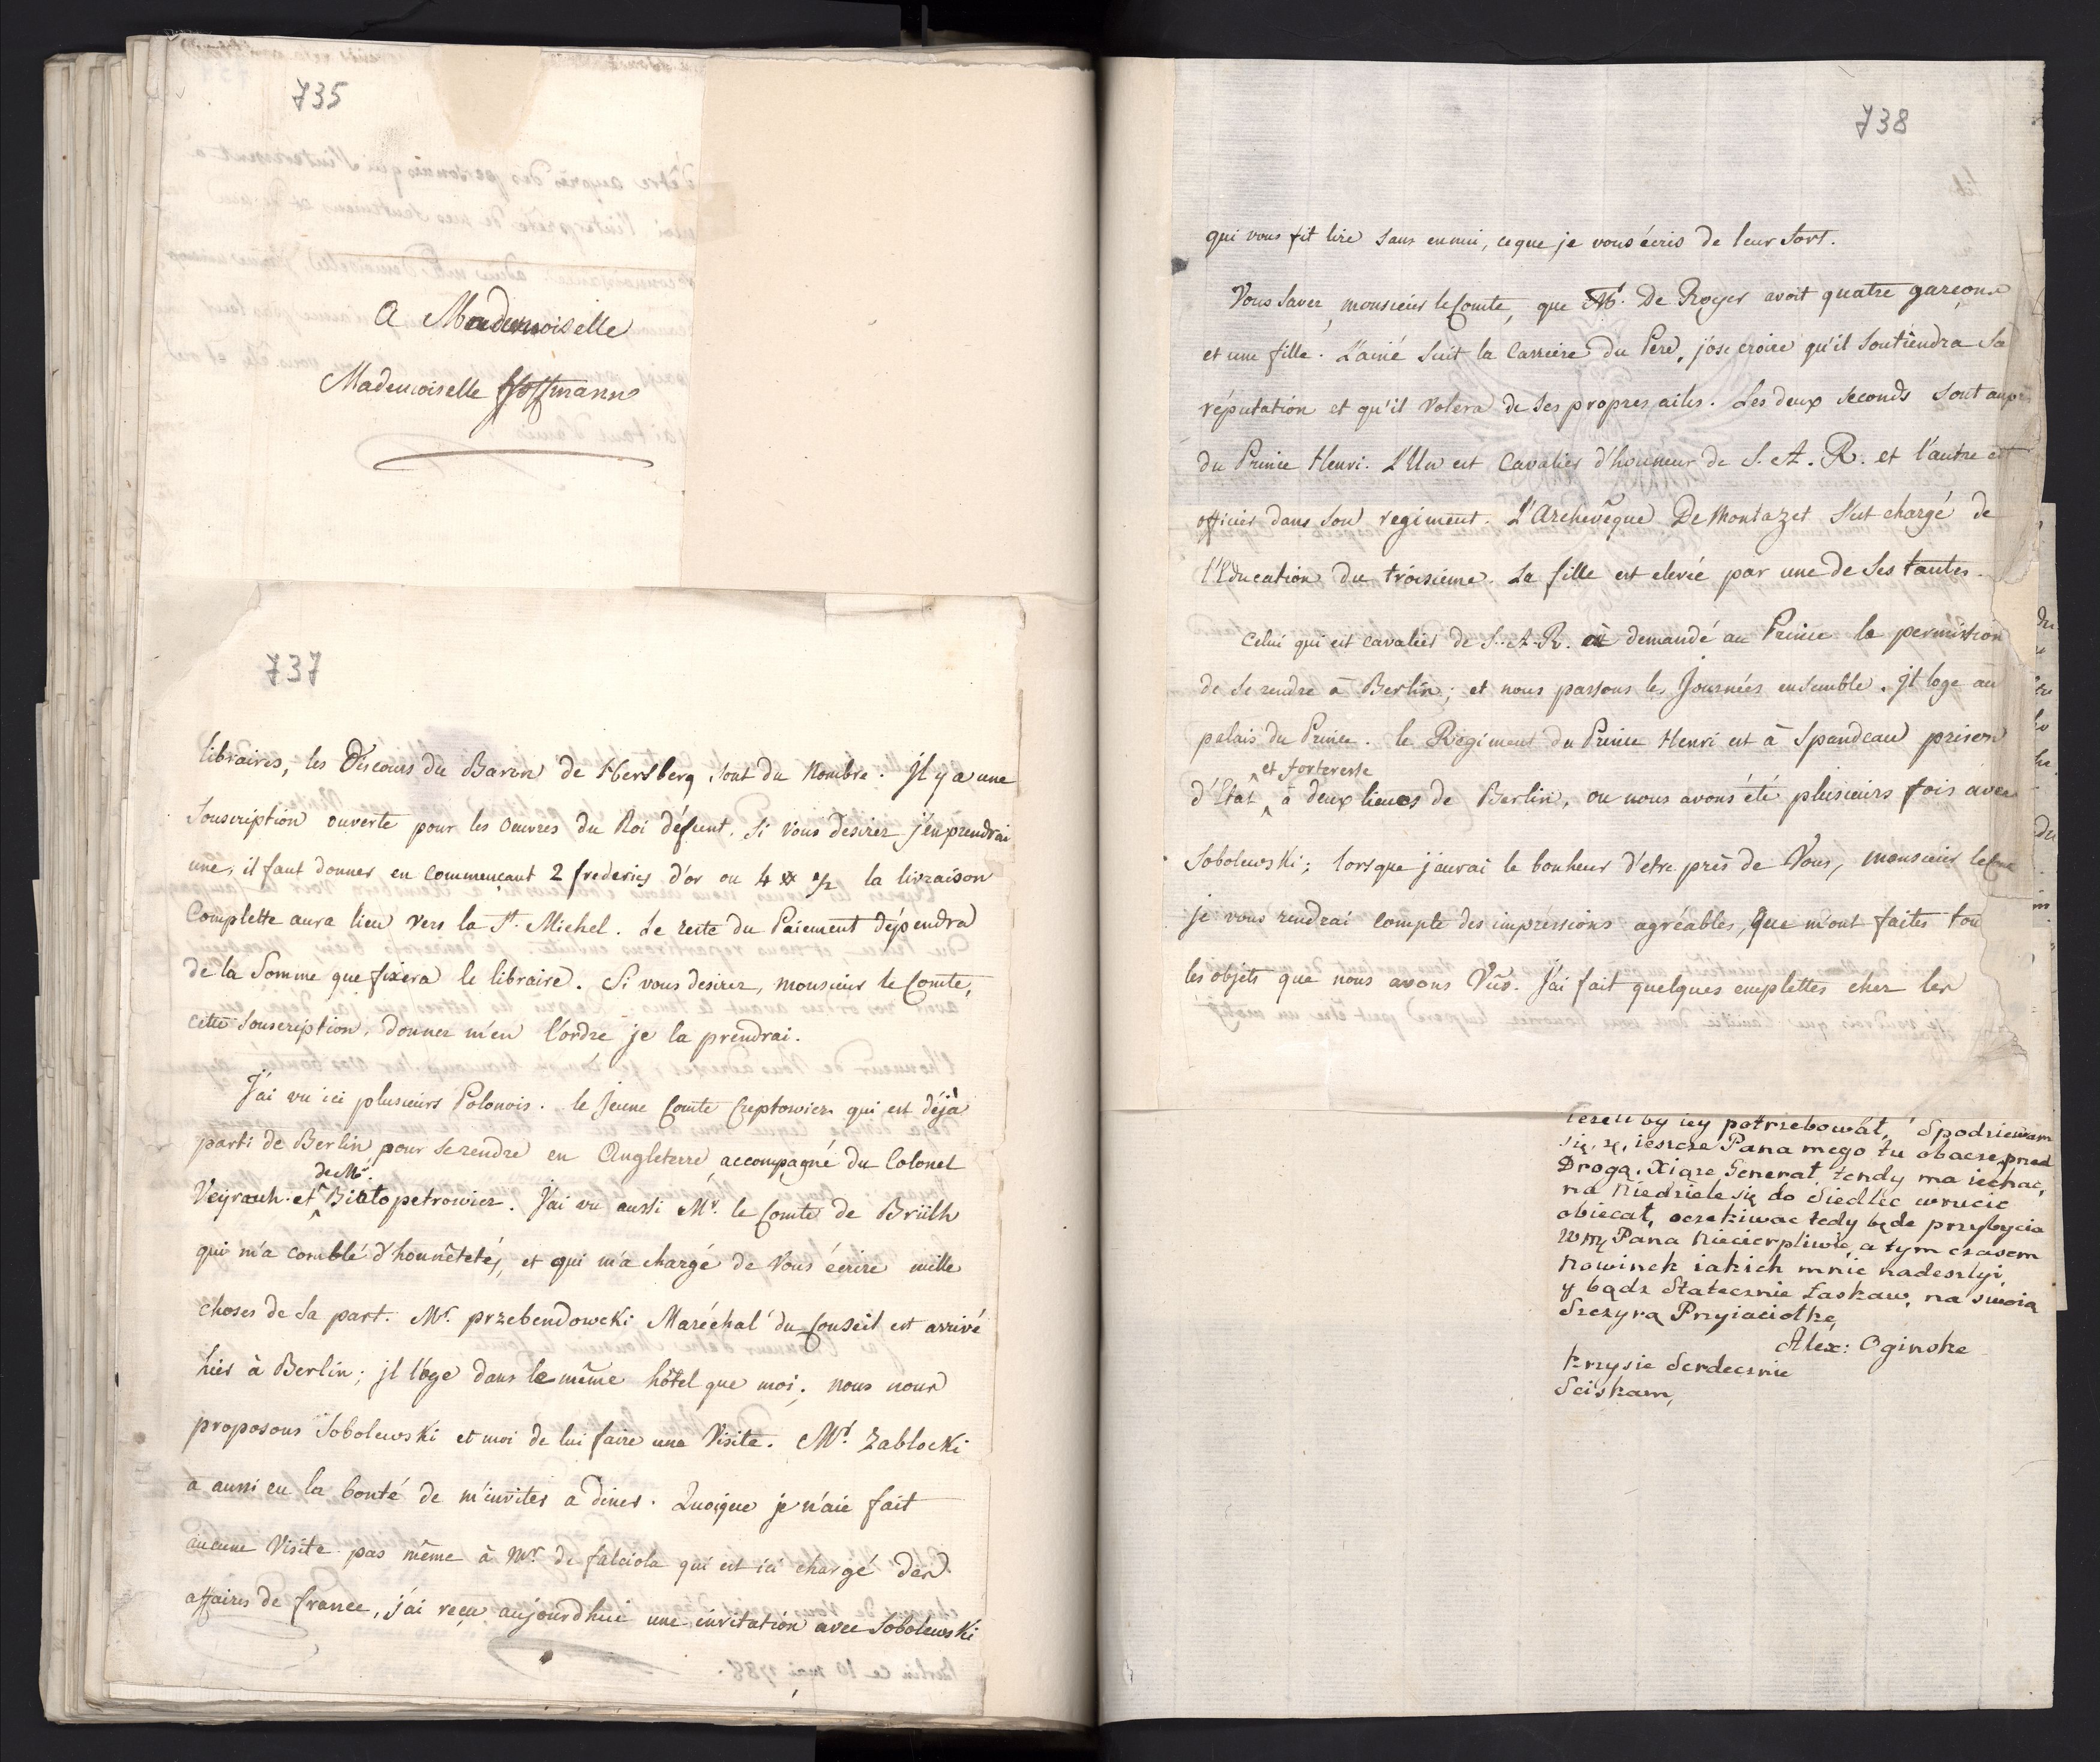 735
A Mademoiselle
Mademoiselle Hoffmann
737
libraires, les Discours du Baron de Hersberg sont du Nombre. Il y a une
Souscription ouverte pour les Oeuvres du Roi défunt. Si Vous desirez j'en prendrai
une, il faut donner en commençant 2 frederics d'or ou 4 # 1/2 la livraison
Complette aura lieu vers la St. Michel. Le reste du Paiement dépendra
de la Somme que fixera le libraire. Si vous desirez, monsieur le Comte,
cette Souscription, donnez m'en l'ordre je la prendrai.
J'ai vu ici plusieurs Polonois. le Jeune Comte Creptowicz qui est déjà
parti de Berlin pour se rendre en Angleterre accompagné du Colonel
de Mr.
Veyrauh. et Biallopetrowicz. J'ai vu aussi Mr. le Comte de Brülh
qui m'a comblé d'honnêtetés, et qui m'a chargé de Vous écrire mille
choses de sa part. Mr. przebendowski Maréchal du Conseil est arrivé
hier à Berlin; il loge dans le même hôtel que moi. nous nous
proposons Sobolewski et moi de lui faire une Visite. Mr. Zablocki
a aussi eu la bonté de m'inviter a diner. Quoique je n'aie fait
aucune Visite pas même à Mr. de falciola qui est ici chargé des
affaires de france, j'ai reçu aujourdhui une invitation avec Sobolewski
738
qui vous fit lire sans ennui, ce que je vous écris de leur Sort.
Vous Savez, monsieur le Comte, que Mr. De Royer avoit quatre garçons
et une fille. L'ainé Suit la Carriere du Pere, j'ose croire qu'il Soutiendra Sa
réputation et qu'il Volera de ses propres ailes. Les deux seconds sont aup
du Prince Henri. L'Un est Cavalier d'honneur de S. A. R. et l'autre est
officier dans Son regiment. L'Archevêque De Montazet s'est chargé de
l'Education du troisieme. La fille est elevée par une de Ses tantes.
Celui qui est cavalier de S. A. R. a demandé au Prince la permission
de Se rendre à Berlin; et nous passons les Journées ensemble. Il loge au
palais du Prince. le Régiment du Prince Henri est à Spandeau prison
et forteresse
d'Etat à deux lieues de Berlin, ou nous avons été plusieurs fois avec
Sobolewski; lorsque j'aurai le bonheur d'etre près de Vous, monsieur le Cte
je vous rendrai compte des impressions agréables, que m'ont faites tou
les objets que nous avons Vûs. J'ai fait quelques emplettes chez les
iezeli by iey potrzebował, Spodziewam
się, że, ieszcze Pana mego tu obaczę przed
Drogą. Xiąże Generał, tendy ma iechać,
na Niedziele się do Siedlec wrucić
obiecał, oczekiwac tedy będe przybycia
WM Pana Niecierpliwie, a tym czasem
Nowinek iakich mnie nadeszlyi,
y bądz Statecznie Łaskaw, na swoią
Szczyrą Przyiaciołkę,
Alex: Oginske
Krzysie Serdecznie
Sciskam,